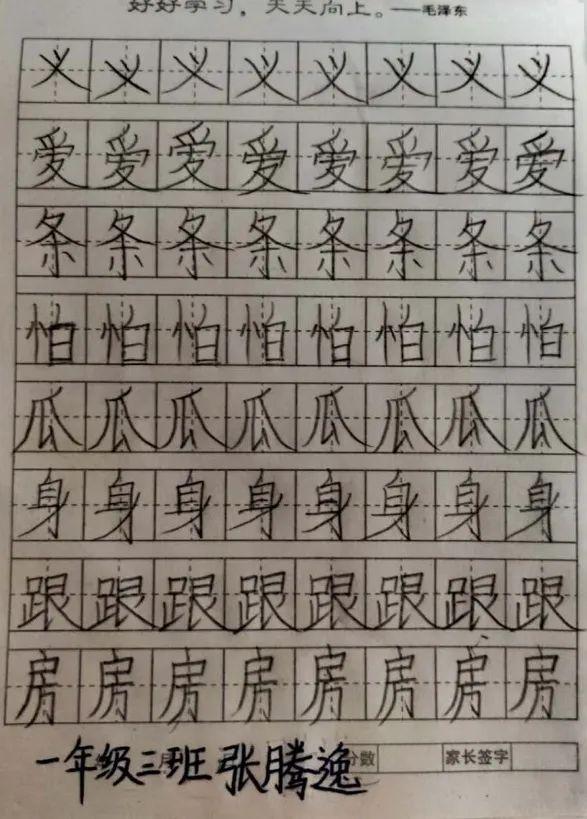 好好学习，天天向上。——毛泽东
义义义义义义义义
爱爱爱爱爱爱爱爱
条条条条条条条条
怕怕怕怕怕怕怕怕
瓜瓜瓜瓜瓜瓜瓜瓜
身身身身身身身身
跟跟跟跟跟跟跟跟
房房房房房房房房
一年级三班张腾逸 分数 家长签字